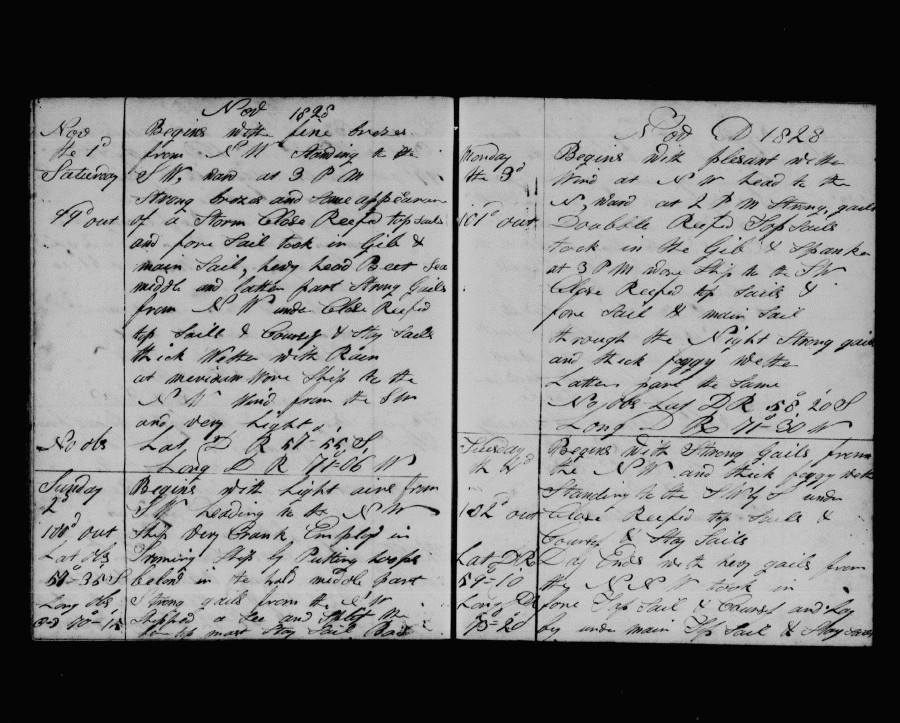 Nov 1828
Nov the 1d Saturday
99d out
Begins with fine brezes
from N W Standing to the
S W, ward at 3 P M
Strong brezes and some appearance
of a Storm Close Reefed top sails
and fore Sail took in Gib &
main Sail, hevy head Beet Sea
middle and latter part Strong Gails
from N W under Close Reefed
top Sails & Courses & Stay Sails
thick Wether with Rain
at meridian Wore Ship to the
N W Wind from the SW
and very light
No obs
Lat D R 57-55 S,
Long D R 71-06 W
Sunday
2d
100d out
Lat obs
58-35 S
Long obs
Begins with light airs from
S W heading to the N W
Ship very Crank Employd in
Steming Ship by Putting
below in the hold middle Part
Strong gails from the N W
Shipped a Sea and Split the
fore top mast Stay Sail Bad
Nov D 1828
Monday
the 3d
101d out
Begins with plesant wethe
Wind at N W head to the
N, ward at 2 P M Strong, gails
Doubble Reefed Top Sails
took in the Gib & Spanker
at 3 P M wore Ship to the S W
Close Reefed top Sails &
fore Sail & main Sail
through the Night Strong gails
and thick foggy wethe
Latter part the Same
No obs Lat D R 58, 20 S
Long D R 71-30 W
Tuesday
th 4d
102d out
Lat D R
59-10
Long DR
Begins with Strong Gails from
the N W and thick foggy weth
Standing to the S W S under
Close Reefed top Sails &
Courses & Stay Sails
Day Ends with hevy gails from
the N N W took in
fore Top Sail & Courses and Lay
by under main Top Sail & Stay sails